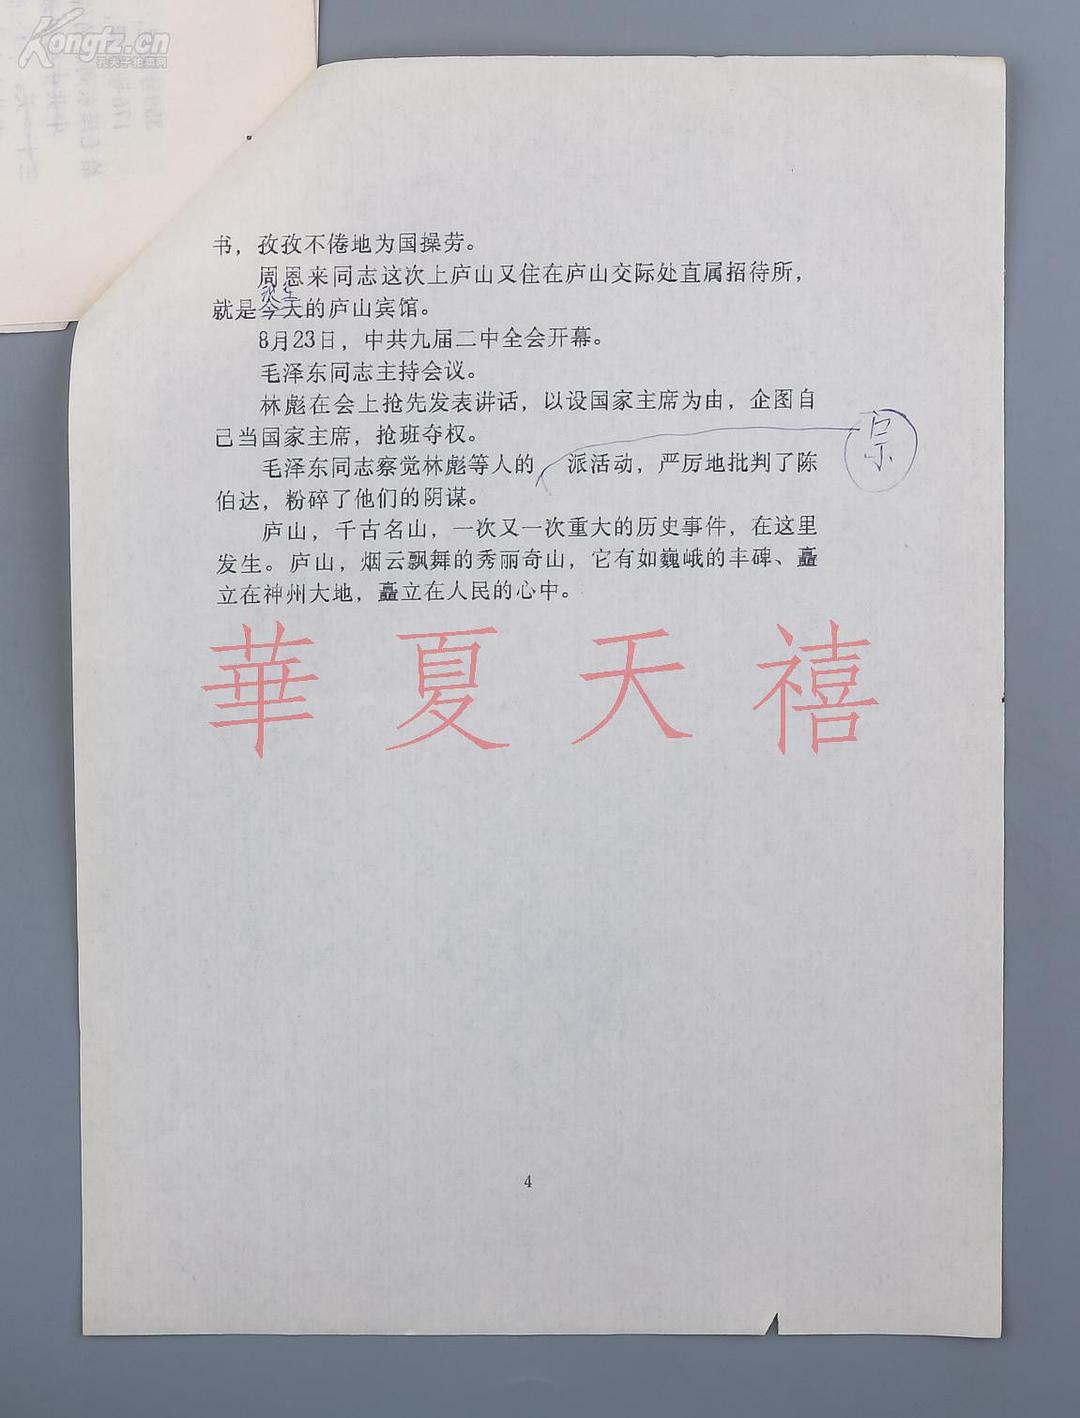 Kongfz.cn
孔夫子拍卖网
书，孜孜不倦地为国操劳。
周恩来同志这次上庐山又住在庐山交际处直属招待所，
就是今天的庐山宾馆。
8月23日，中共九届二中全会开幕。
毛泽东同志主持会议。
林彪在会上抢先发表讲话，以设国家主席为由，企图自
己当国家主席，抢班夺权。
宗
毛泽东同志察觉林彪等人的　派活动，严厉地批判了陈
伯达，粉碎了他们的阴谋。
庐山，千古名山，一次又一次重大的历史事件，在这里
发生。庐山，烟云飘舞的秀丽奇山，它有如巍峨的丰碑、矗
立在神州大地，矗立在人民的心中。
華夏天禧
4